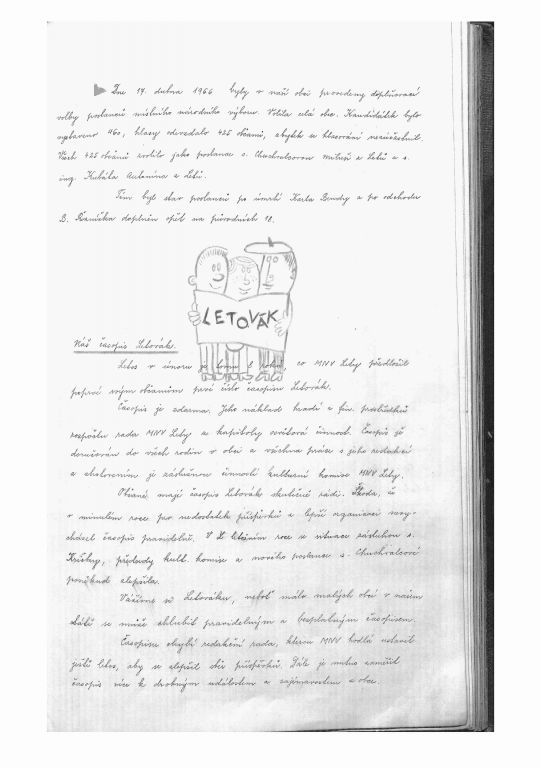 Dne 17. dubna 1966 byly v naší obci provedeny doplňovací
volby poslanců místního národního výboru. Volila celá obec. Kandidátek bylo
vystaveno 460, hlasy odevzdalo 425 občanů, zbytek se hlasování nezúčastnil.
Všech 425 občanů zvolilo jako poslance s. Chuchvalcovou z Letů a s.
ing. Kubáta Antonína z Letů.
Tím byl stav poslanců po úmrtí Karla Bendy a po odchodu
B. Řezníčka doplněn opět na původních 18.
LETOVÁK
Náš časopis Letovák.
Letos v únoru je tomu roků, co MNV Lety předložil
poprvé svým občanům prvé číslo časopisu Letovák.
Časopis je zdarma. Jeho náklad hradí z fin. prostředků
rozpočtu rada MNV Lety z kapitoly osvětová činnost. Časopis je
doručován do všech rodin v obci a všechna práce s jeho redakcí
a zhotovením je záslužnou činností kulturní komise MNV Lety.
Občané mají časopis Letovák skutečně rádi. Škoda, že
v minulém roce pro nedostatek příspěvků a lepší organizaci nevy-
cházel časopis pravidelně. V letošním roce se situace zásluhou s.
předsedy kult. komise a nového poslance s. Chuchvalcové
poněkud zlepšila.
Važme si Letováku, neboť málo malých obcí v našem
státě se může chlubit pravidelným a bezplatným časopisem.
Časopisu chybí redakční rada, kterou MNV hodlá ustavit
ještě letos, aby se zlepšil obsah příspěvků. Dále je nutno zaměřit
časopis více k drobným událostem a zajímavostem z obce.